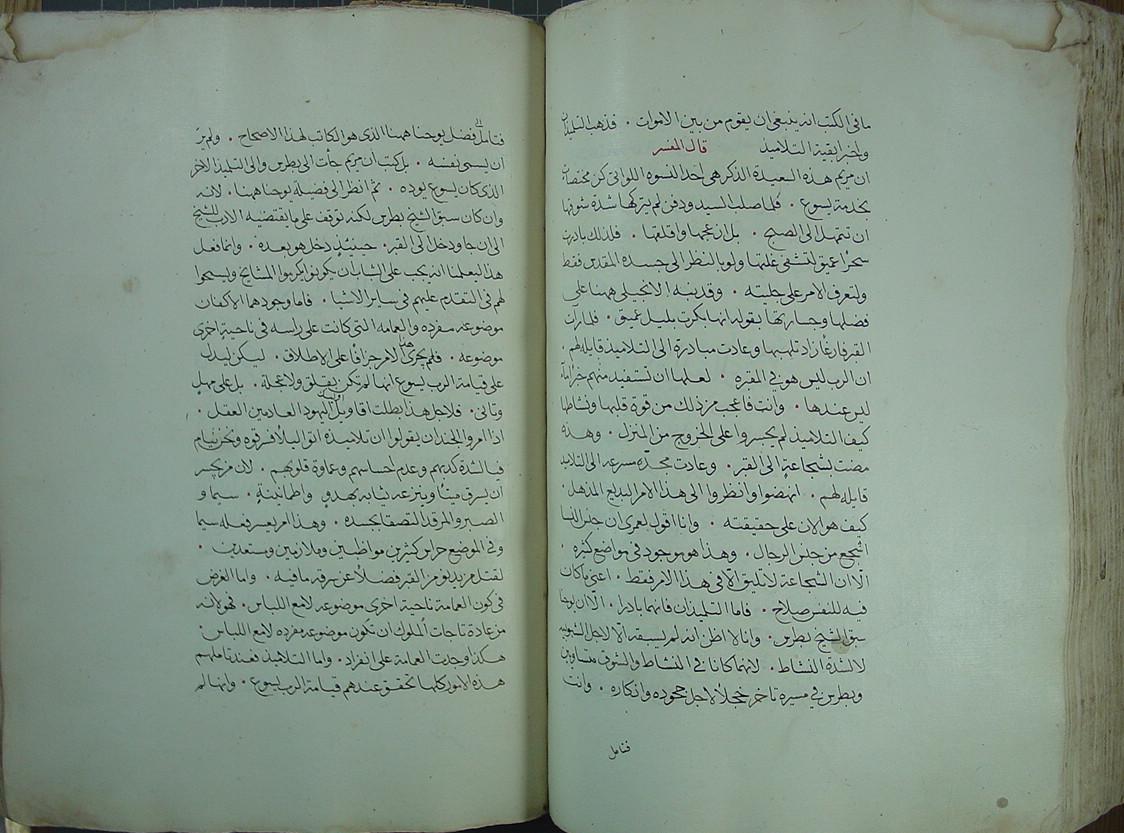 ما في الكتب انه ينبغي ان يقوم من بين الاموات . فذهب التلميذان
واخبرا بقية التلاميذ قال المفسر
ان مريم هذه السعيدة الذكر هي احدا النسوه اللواتي كن مختصات
بخدمة يسوع . فلما صلب السيد ودفن لم يتركها شدة شوقها
ان تتمهل الى الصبح . بل ازعجها واقلقها . فلذلك بادرت
سحرًا عميق لتشفي غلتها ولو بالنظر الى جسده المقدس فقط
ولتعرف الامر على جليته . وقد نبه الانجيلي ههنا على
فضلها وجسارتها بقوله انها بكرت بليل غميق . فلما رات
القبر فارغًا زاد تلهبها وعادت مبادرة الى التلاميذ قايله لهم
ان الرب ليس هو في المقبره . لعلها ان تستفيد منهم خبرًا ما
ليس عندها . وانت فاعجب من ذلك من قوة قلبها ونشاطها
كيف التلاميذ لم يجسروا على الخروج من المنزل . وهذه
مضت بشجاعةٍ الى القبر . وعادت مجدّه مسرعه الى التلاميذ
قايله لهم . انهضوا وانظروا الى هذا الامر البديع المذهل .
كيف هو الان على حقيقته . وانا اقول لعمري ان جنس النسا
اشجع من جنس الرجال . وهذا هو موجود في مواضع كثيره .
الا ان الشجاعة لا تليق الا في هذا الامر فقط . اعني ما كان
فيه للنفس صلاح . فاما التلميذان فانهما بادرا . الا ان يوحنا
سبق الشيخ بطرس . وانا لا اظن انه لم يسبقه الا لاجل الشبوبيه
لا لشدة النشاط . لانهما كانا في النشاط والشوق متساويين
وبطرس في مسيره تاخر خجلًا لاجل جحوده وانكاره . وانت
فتامل
فتامل الان فضل يوحنا ههنا الذي هو الكاتب لهذا الاصحاح . ولم يرَ
ان يسمي نفسه . بل كتب ان مريم جات الى بطرس والى التلميذ الاخر
الذي كان يسوع يوده . ثم انظر الى فضيلة يوحنا ههنا . لانه
وان كان سبق الشيخ بطرس لكنه توقف على ما يقتضيه الادب للشيخ
الى ان جا ودخل الى القبر . حينيذٍ دخل هو بعده . وانما فعل
هذا ليعلمنا انه يجب على الشاب ان يكونوا يكرموا المشايخ ويسمحوا
لهم في التقدم عليهم في ساير الاشيا . فاما وجودهما الاكفان
موضوعه مفرده والعمامه التي كانت على راسه في ناحيةٍ اخرى
موضوعه . فلم يجرى هذا الامر جزافًا على الاطلاق . ليكن ليدل
على قيامة الرب يسوع انها لم تكن بقلقٍ ولا عجلة . بل على مهلٍ
وتاني . فلاجل هذا بطلت اقاويل اليهود العادمين العقل .
اذا امروا الجند ان يقولوا ان تلاميذه اتوا ليلًا وسرقوه ونحن نيام
فيا لشدة كذبهم وعدم احساسهم وعماوة قلوبهم . لان من يجسر
ان يسرق ميتًا وينزعه ثيابه بهدوٍ واطمانينةٍ . سيما و
الصبر والمر قد التصقا بجسده . وهذا امر يعسر فعله سيما
وفي الموضع حراس كثيرين مواظبين وملازمين ومستعدين .
لقتل من يدنو من القبر فضلًا عن سرقه ما فيه . واما الغرض
في كون العمامة ناحية اخرى موضوعه لا مع اللباس . فهو لانه
من عادة تاجات الملوك ان تكون موضوعه مفرده لا مع اللباس .
هكذا وجدت العمامة على انفراد . واما التلاميذ فعند تاملهم
هذه الامور كلها تحقق عندهم قيامة الرب يسوع . وانها لم